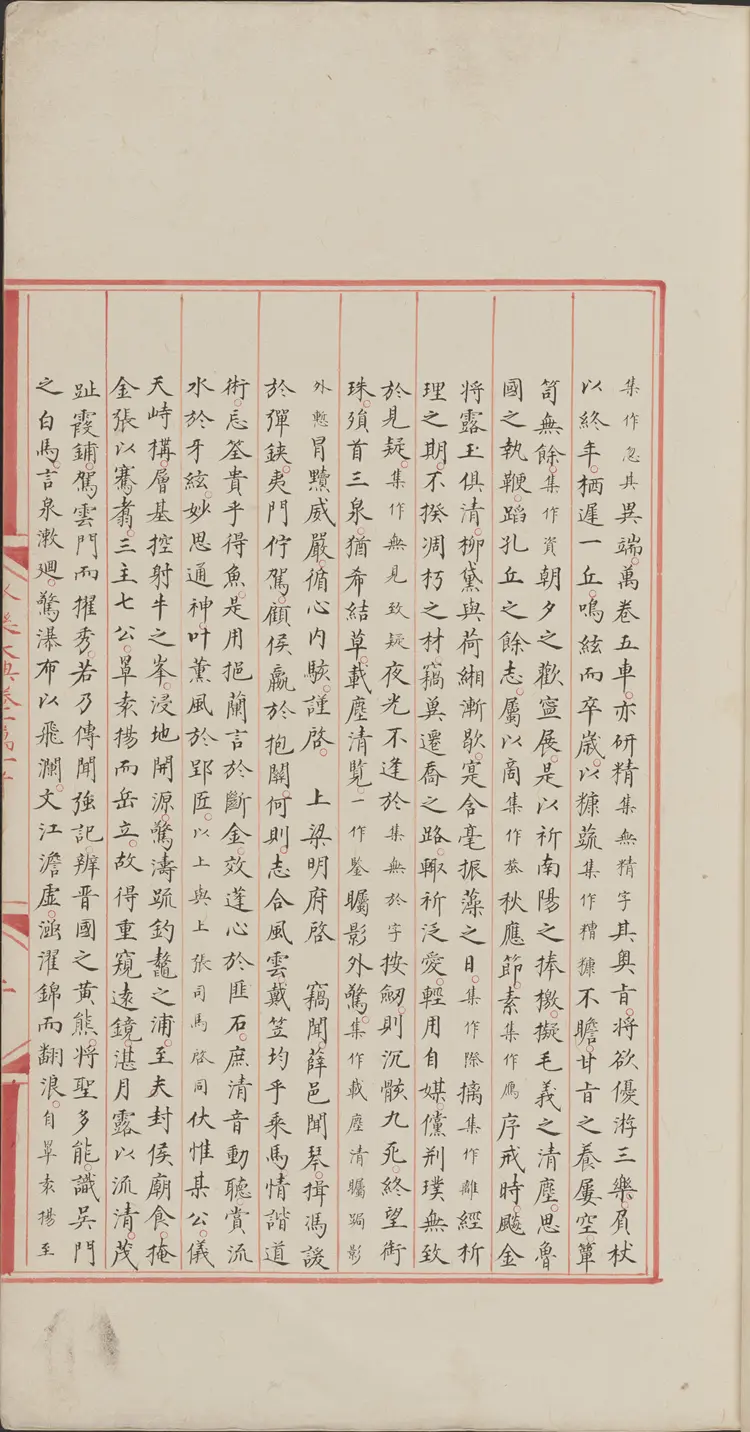 集作忽其異端萬卷五車亦研精集無精字其奧旨將欲優游三樂負杖
以終年栖遲一丘鳴絃而卒歲以糠蔬集作糟糠不贍甘旨之養屢空簞
笥無餘集作資朝夕之歡寧展是以祈南陽之捧檄擬毛義之清塵思魯
國之執鞭蹈孔丘之餘志屬以商集作蓐秋應節素集作鴈序戒時飈金
將露玉俱清柳黛與荷緗漸歇寔含毫振藻之日集作際摛集作離經析
理之期不揆凋朽之材竊冀遷喬之路輙祈泛愛輕用自媒儻荆璞無致
於見疑集作無見致疑夜光不逢於集無於字按劒則沉骸九死終望銜
珠殞首三泉猶希結草載塵清覧一作鑒矚影外驚集作載塵清矚跼影
外慙冒黷威嚴循心内駭謹啓 上梁明府啓 竊聞薛邑聞琴揖馮諼
於彈鋏夷門佇駕顧侯嬴於抱關何則志合風雲戴笠均乎乘馬情諧道
術忘筌貴乎得魚是用挹蘭言於斷金效蓬心於匪石庶清音動聽賞流
水於牙絃妙思通神叶薰風於郢匠以上與上張司馬啓同伏惟某公儀
天峙構層基控射牛之峯浸地開源驚濤疏釣鼇之浦至夫封侯廟食掩
金張以騫翥三主七公罩袁揚而岳立故得重窺遠鏡湛月露以流清茂
趾霞鋪駕雲門而擢秀若乃傳聞強記辨晋國之黄熊將聖多能識吳門
之白馬言泉漱廻驚瀑布以飛瀾文江澹虚涵濯錦而翻浪自罩袁揚至